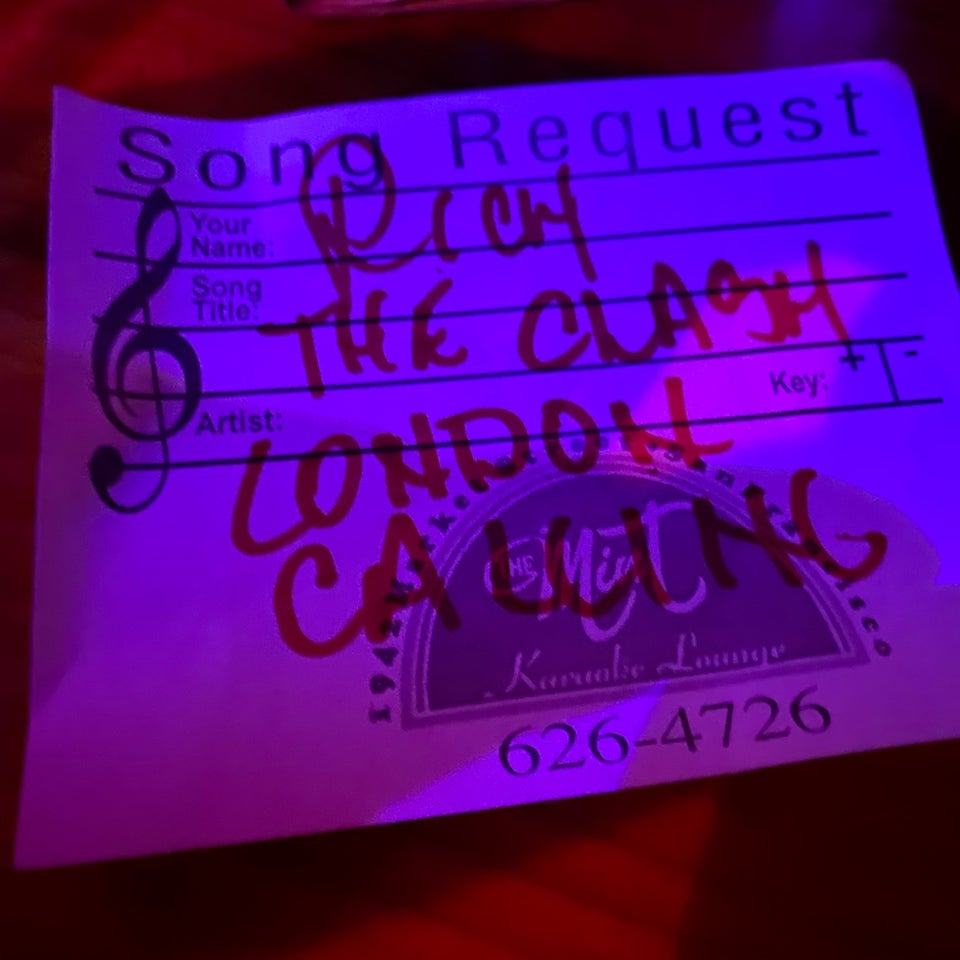 Song Request
Your Name: RICH
Song Title: THE CLASH
Key: + -
Artist: LONDON
CALLING
1942 Market San Francisco
THE Mint
Karaoke Lounge
626-4726